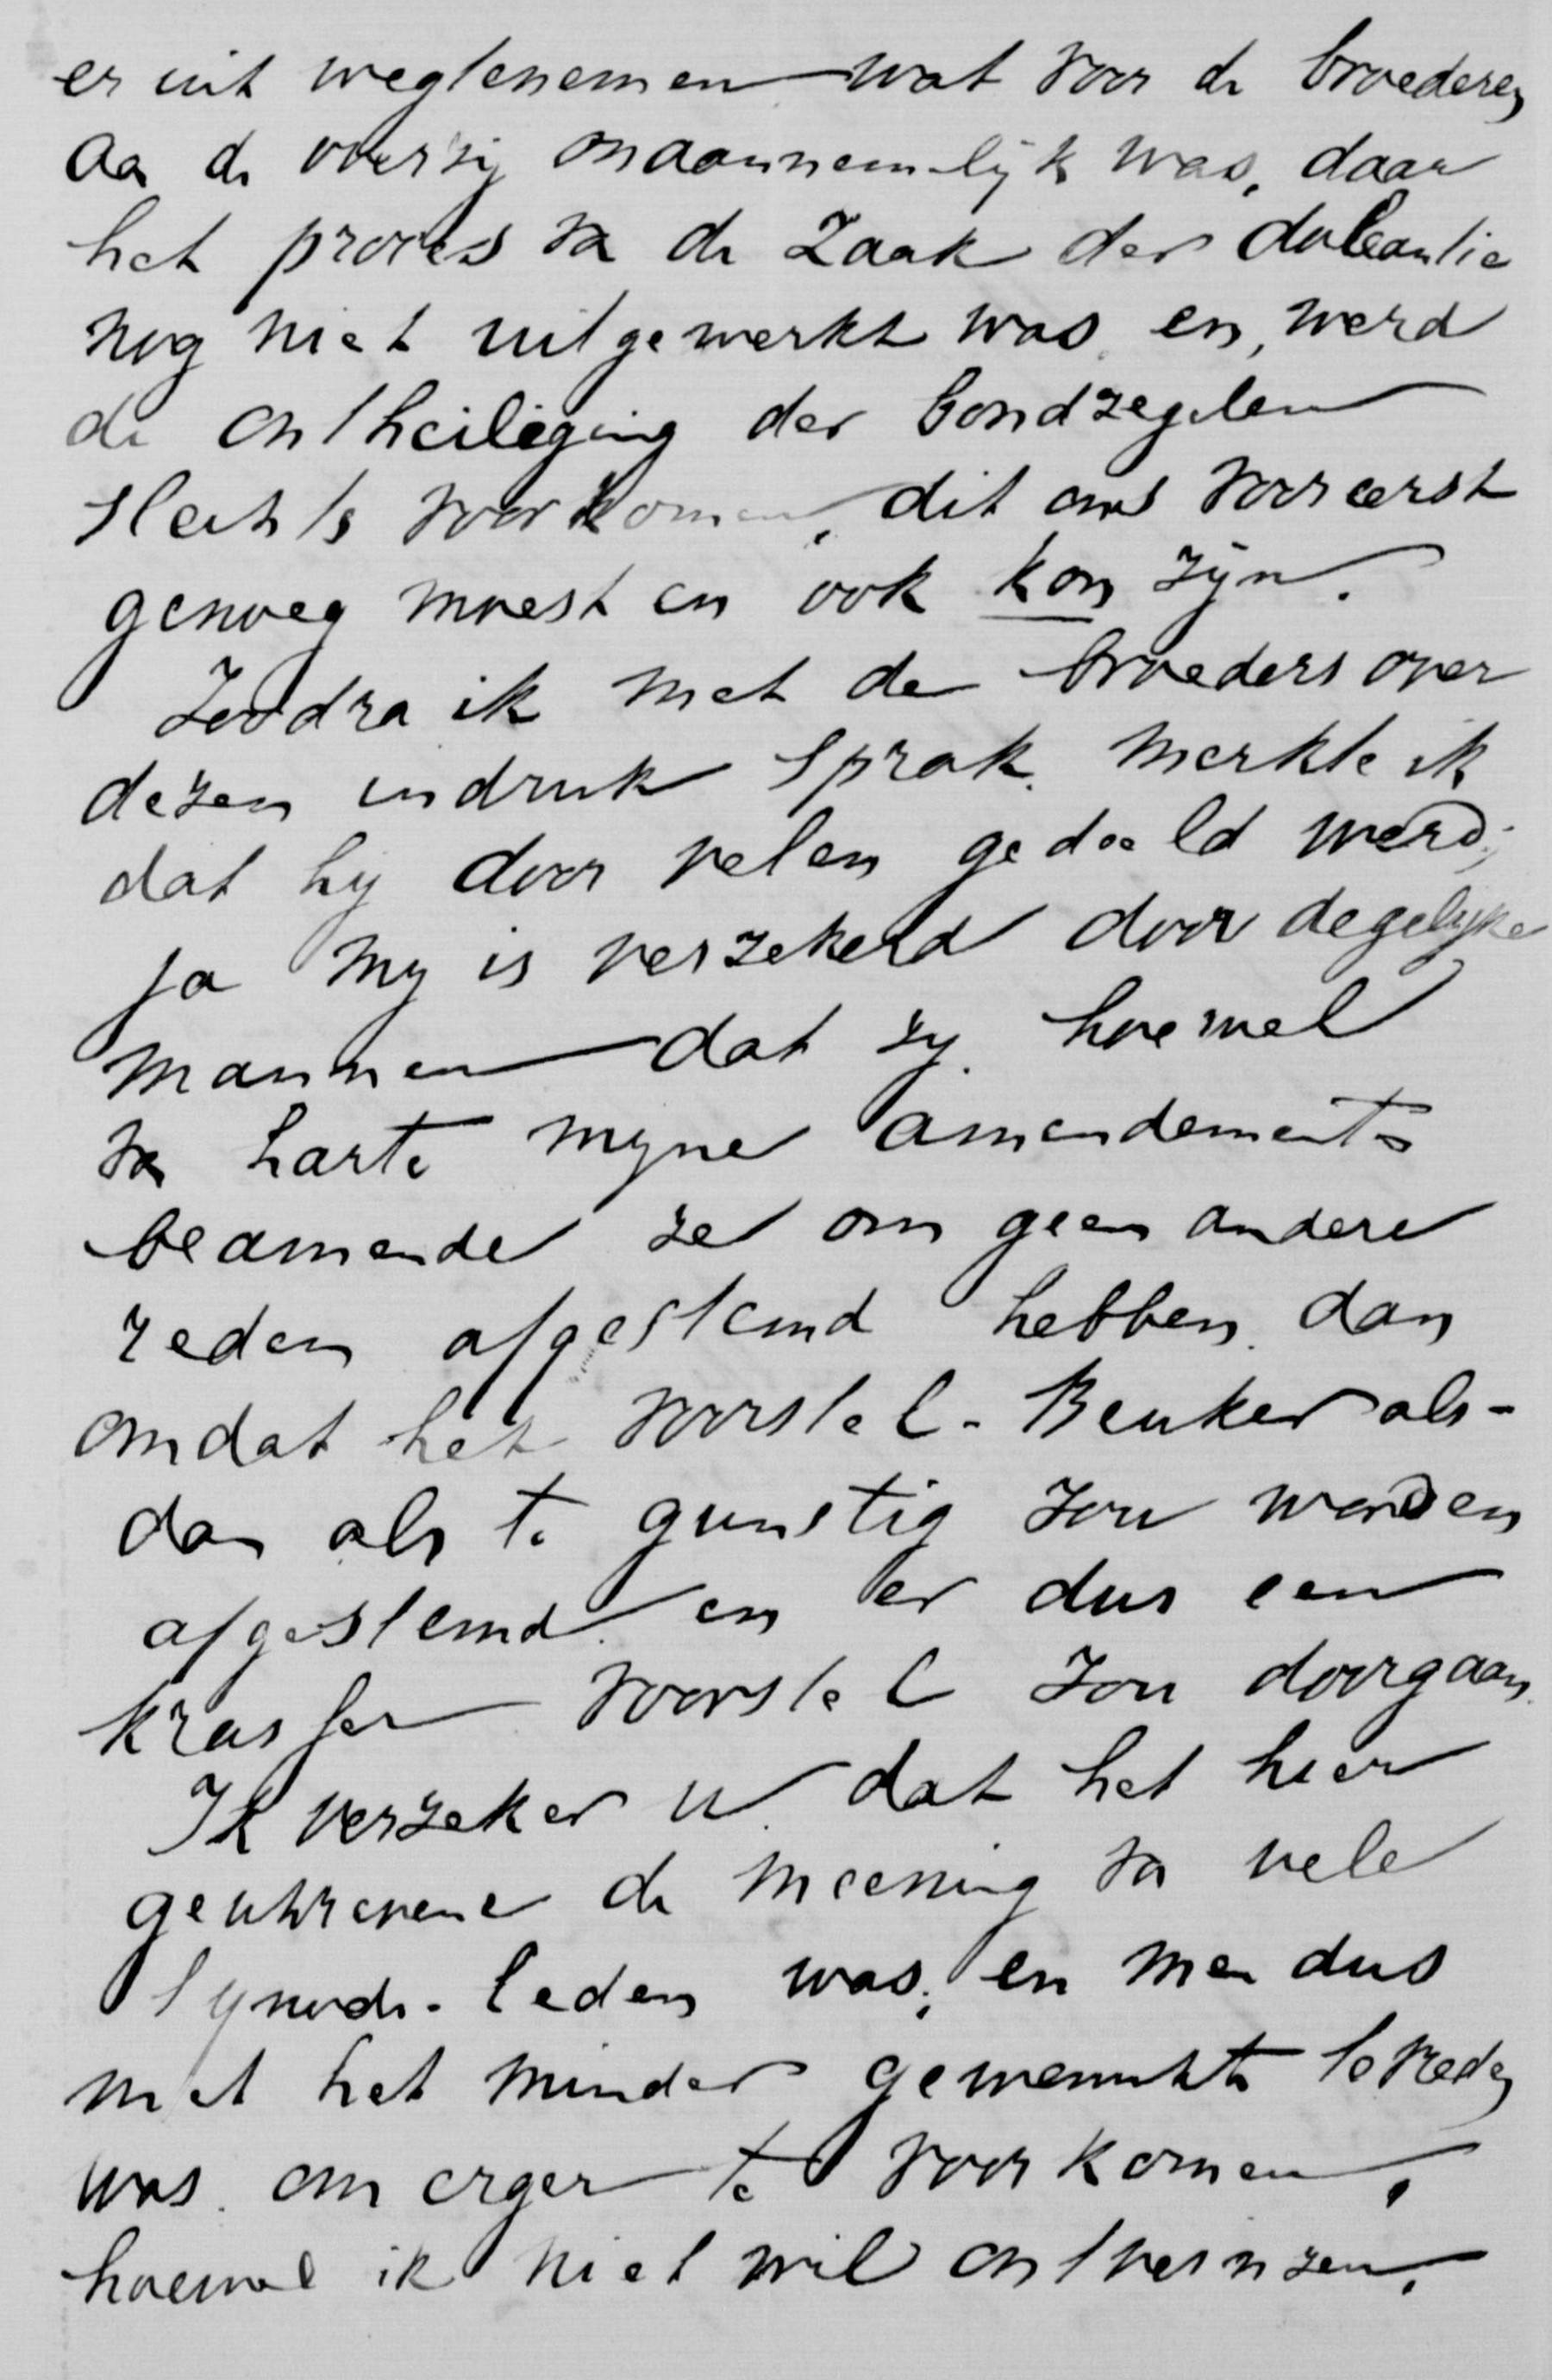 er uit wegtenemen wat voor de broederen
aa de overzij onaannemelijk was, daar
het proces va de zaak der doleantie
nog niet uitgewerkt was en, werd
de ontheiliging der bondzegelen
slechts voorkomen, dit ons vooreerst
genoeg moest en ook kon zijn.
Zoodra ik met de broeders over
dezen indruk sprak, merkte ik
dat hij door velen gedeeld werd;
ja mij is verzekerd door degelijke
mannen dat zij, hoewel
va harte mijne amendements
beamende ze om geen andere
reden afgestemd hebben, dan
omdat het voorstel-Beuker als-
dan als te gunstig zou worden
afgestemd en er dus een
krasser voorstel zou doorgaan.
Ik verzeker u dat het hier
geschrevene de meening va vele
Synode-leden was; en men dus
met het minder gewenschte tevreden
was om erger te voorkomen,
hoewel ik niet wil ontveinzen,